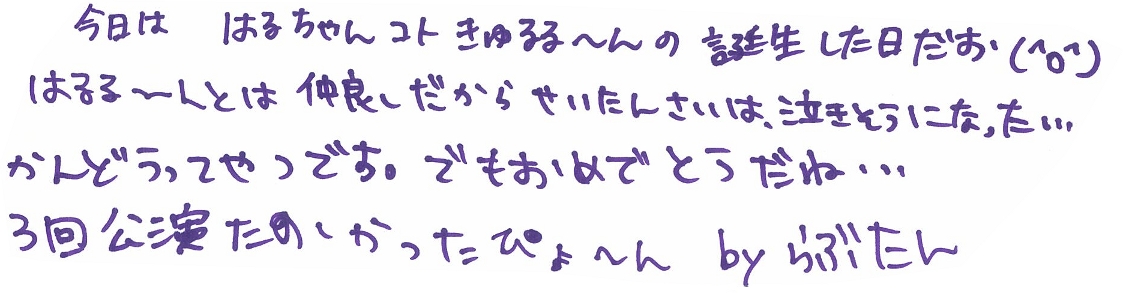 今日は はるちゃんコト きゅるる〜んの 誕生した日だお(^o^)
はるる〜んとは 仲良しだから せいたんさいは、泣きそうになった…
かんどうってやつです。でもおめでとうだね…
3回公演たのしかったぴょ〜ん by らぶたん